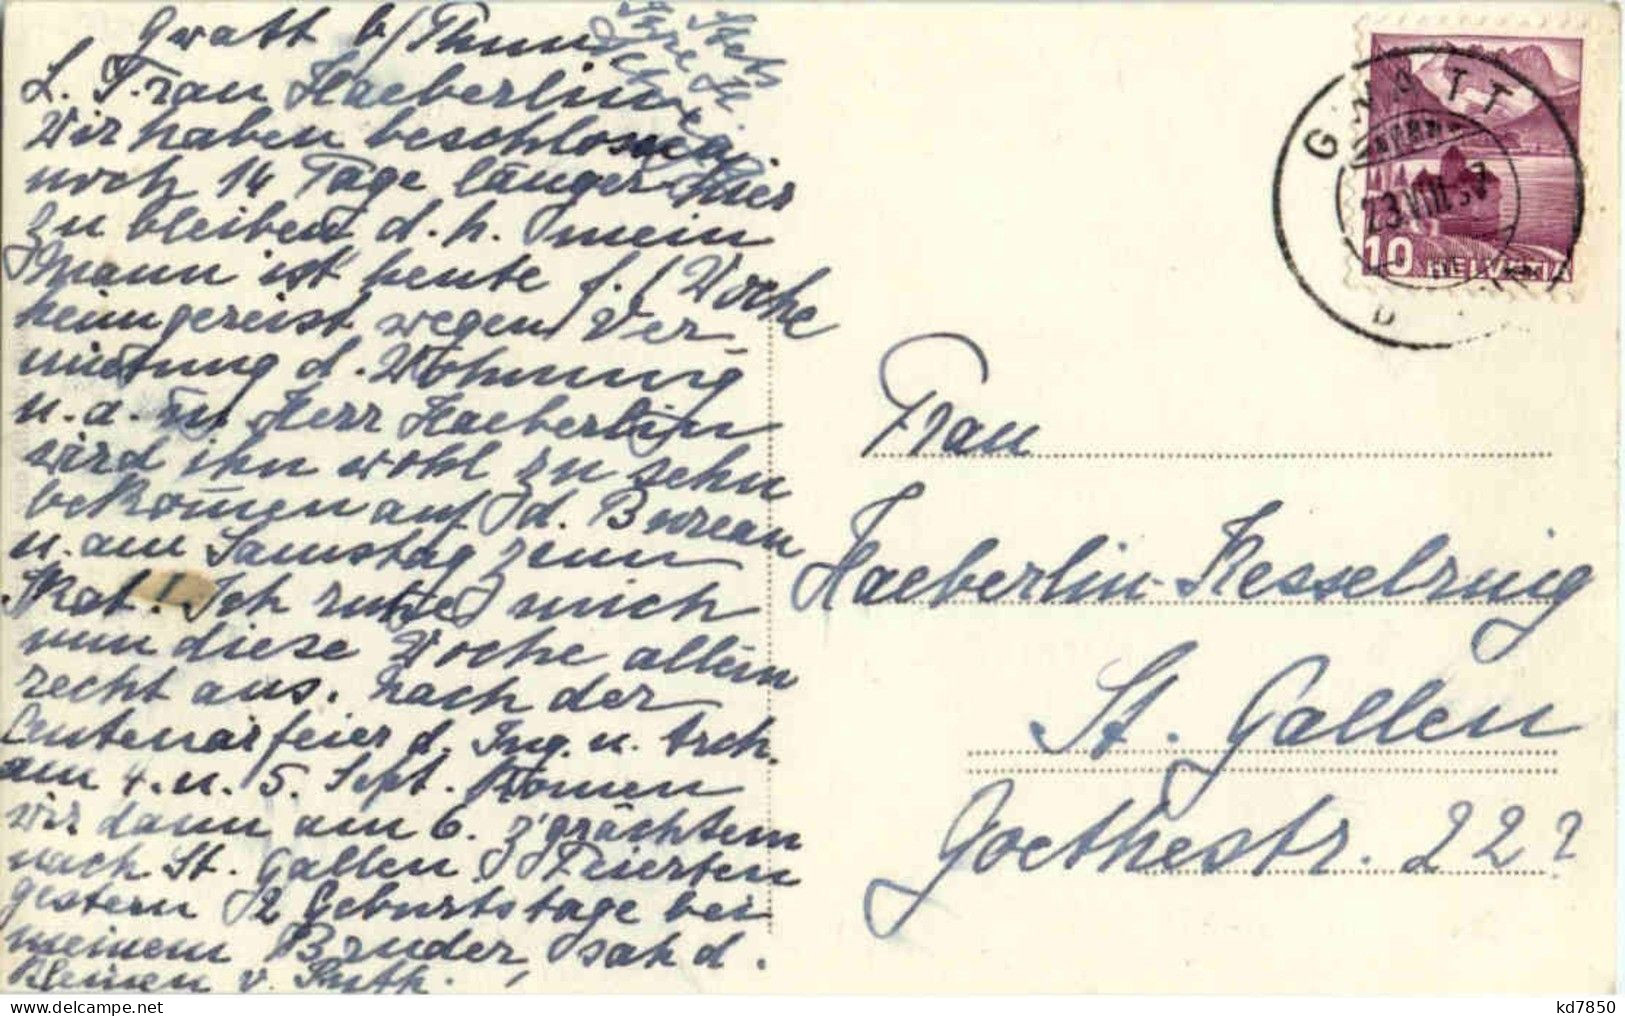 Gwatt b/Thun
L. Frau Haeberlin
Wir haben beschlossen
noch 14 Tage länger hier
zu bleiben d. h. mein
Mann ist heute f. 1 Woche
heimgereist wegen Ver-
mietung d. Wohnung
u. a. m. Herr Haeberlin
wird ihn wohl zu sehn
bekom̄en auf d. Bureau
u. am Samstag zum
Skat. Ich ruhe mich
nun diese Woche allein
recht aus. Nach der
Centenarfeier d. Ing. u. Arch.
am 4. u. 5. Sept. kom̄en
wir dann am 6. z'grächtem
nach St. Gallen. Feierten
gestern 2 Geburtstage bei
meinem Bruder, sah d.
Kleinen v. Ruth.
Stets
Ihre H.
GWATT
23.VIII.37
10 HELVETIA
Frau
Haeberlin-Kesselring
St. Gallen
Goethestr. 22?
kd7850